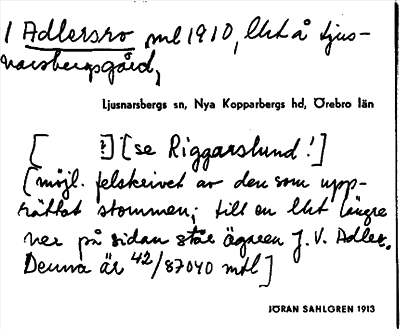 1 Adlersro, ml 1910, lht å Ljus-
narsbergsgård,
Ljusnarsbergs sn, Nya Kopparbergs hd, Örebro län
[ ?] [se Riggarslund!]
[möjl. felskrivet av den som upp-
rättat stommen; till en lht längre
ner på sidan står ägaren J. V. Adler.
Denna är 42/87040 mtl]
JÖRAN SAHLGREN 1913